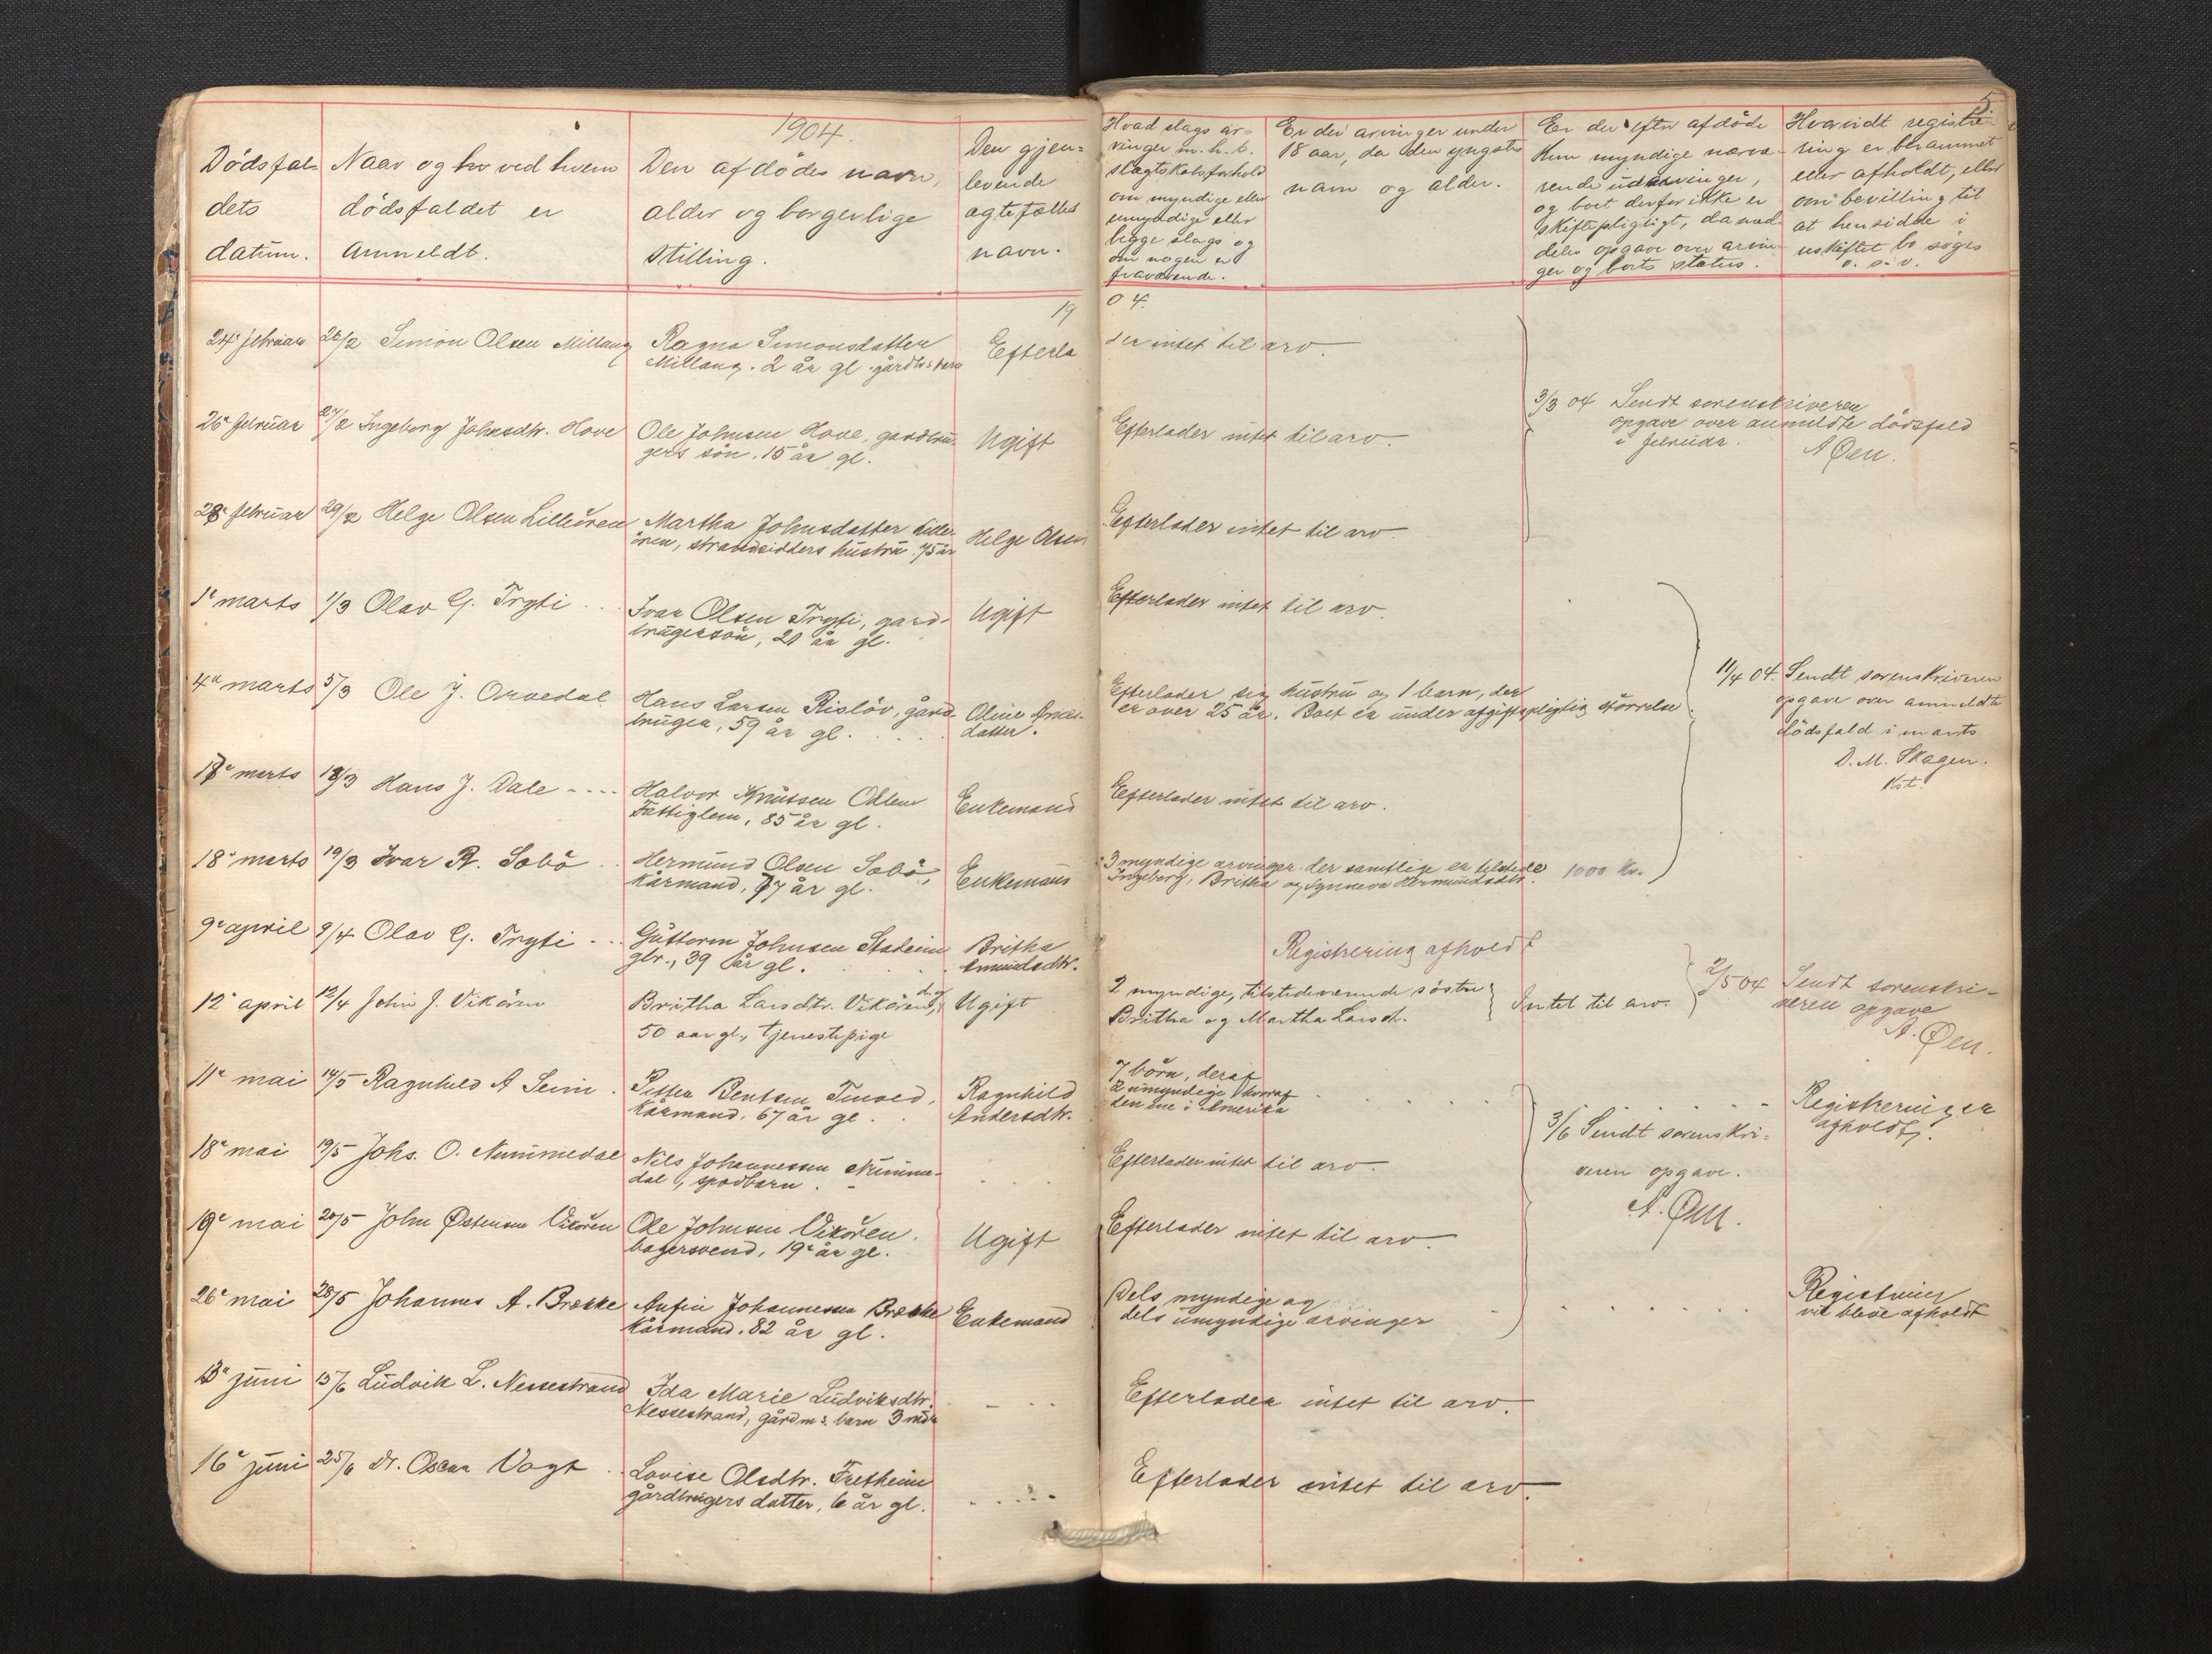 1904.
Dödsfal-
dets
datum.
Naar og ved hvem
dödsfaldet er
anmeldt.
Den afdödes navn,
alder og borgerlige
stilling.
Den gjen-
levende
ægtefælles
navn.
5.
Hvad slags ar-
vinger m. h. t.
slægtskabsforhold
om myndige eller
umyndige eller
begge slags og
om nogen er
fraværende.
Er der arvinger under
18 aar, da den yngstes
navn og alder.
Er der efter afdöde
kun myndige nærvæ-
rende udarvinger,
og boet derfor ikke er
skiftepligtigt, da med-
deles opgave over arvin-
ger og boets status.
Hvorvidt registre-
ring er berammet
eller afholdt, eller
om bevilling til
at hensidde i
uskiftet bo söges
o. s. v.
19
04.
24de februar
26/2 Simon Olsen Millang
Ragna Simonsdatter
Millang. 2 år gl. gårdbr.s barn
Efterla
der intet til arv.
26de februar
27/2 Ingeborg Johnsdtr. Hove
Ole Johnsen Hove, gardbru-
gers sön. 15 år gl.
Ugift
Efterlader intet til arv.
3/3 04 Sendt sorenskriveren
opgave over anmeldte dödsfald
i februar.
A Øen.
28de februar
29/2 Helge Olsen Lilleören
Martha Johnsdatter Lille-
ören, strandsidders hustru 75 år
Helge Olsen
Efterlader intet til arv.
1ste marts
1/3 Olav G. Tryti . . .
Ivar Olsen Tryti, gard-
brugersön, 21 år gl.
Ugift
Efterlader intet til arv.
4de marts
5/3 Ole J. Orvedal
Hans Larsen Rislöv, gård-
bruger, 59 år gl. . . . .
Oline
datter.
Efterlader sig hustru og 1 barn, der
er over 25 år. Boet er under afgiftspligtig störrelse
11/4 04. Sendt sorenskriveren
opgave over anmeldte
dödsfald i marts
D. M. Skagen.
Kst.
18de marts
18/3 Hans J. Dale - - - -
Halvor Knutsen
Fattiglem, 85 år gl.
Enkemand
Efterlader intet til arv.
18de marts
19/3 Ivar R. Sabö . .
Hermund Olsen Sabö,
Kårmand, 77 år gl.
Enkemand
3 myndige arvinger, der samtlige er tilstede
Ingeborg, Britha og Synneva Hermundsdtr.
1000 Kr.
9de april
9/4 Olav G. Tryti - . .
Guttorm Johnsen Stadeim
gbr., 39 år gl. . . .
Britha
Amundsdtr.
Registrering afholdt
12te april
12/4 John J. Vikören
Britha Larsdtr. Vikören,
50 aar gl., tjenestepige
Ugift
2 myndige, tilstedeværende söstre
Britha og Martha Larsd.
Intet til arv.
2/5 04 Sendt sorenskri-
veren opgave
A. Øen.
11te mai
14/5 Ragnhild A Seim .
Petter Bentsen Tinvold,
Kårmand, 67 år gl. .
Ragnhild
Andersdtr.
7 börn, deraf
2 umyndige, hvoraf
den ene i Amerika
Registrering er
afholdt.
3/6 Sendt sorenskri-
veren opgave.
A. Øen.
18de mai
19/5 Johs. O. Nummedal
Nils Johannessen Numme-
dal, spædbarn.
Efterlader intet til arv.
19de mai
20/5 John Østensen Vikören
Ole Johnsen Vikören.
bagersvend, 19 år gl.
Ugift
Efterlader intet til arv.
26de mai
28/5 Johannes A. Brekke
Anfin Johannessen Brekke
Kårmand. 82 år gl.
Enkemand
Dels myndige og
dels umyndige arvinger
Registrering
vil blive afholdt
13de juni
15/6 Ludvik L. Nessestrand
Ida Marie Ludviksdtr.
Nessestrand, gårdm.s barn 3 mdr
Efterlader intet til arv.
16de juni
25/6 Dr. Oscar Vogt . .
Lovise Olsdtr. Fretheim
gårdbrugers datter, 6 år gl.
Efterlader intet til arv.